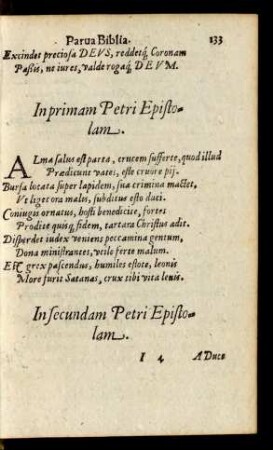 Parua Biblia. 133
Excindet preciosa DEVS, reddetq́; Coronam
Passis, ne iures, valde rogaq́; DEVM.
In primam Petri Episto-
lam.
ALma salus est parta, crucem sufferte, quod illud
Prædicunt vates, este cruore pij.
Bursa locata super lapidem, sua crimina mactet,
Vt liget ora malis, subditus esto duci.
Coniugis ornatus, hosti benedicite, fortes
Prodite quinq; fidem, tartara Christus adit.
Disperdet iudex veniens peccamina gentum,
Dona ministrantes, vtile ferte malum.
Est grex pascendus, humiles estote, leonis
More furit Satanas, crux sibi vita leuis.
In secundam Petri Episto-
lam.
I 4 A Duce